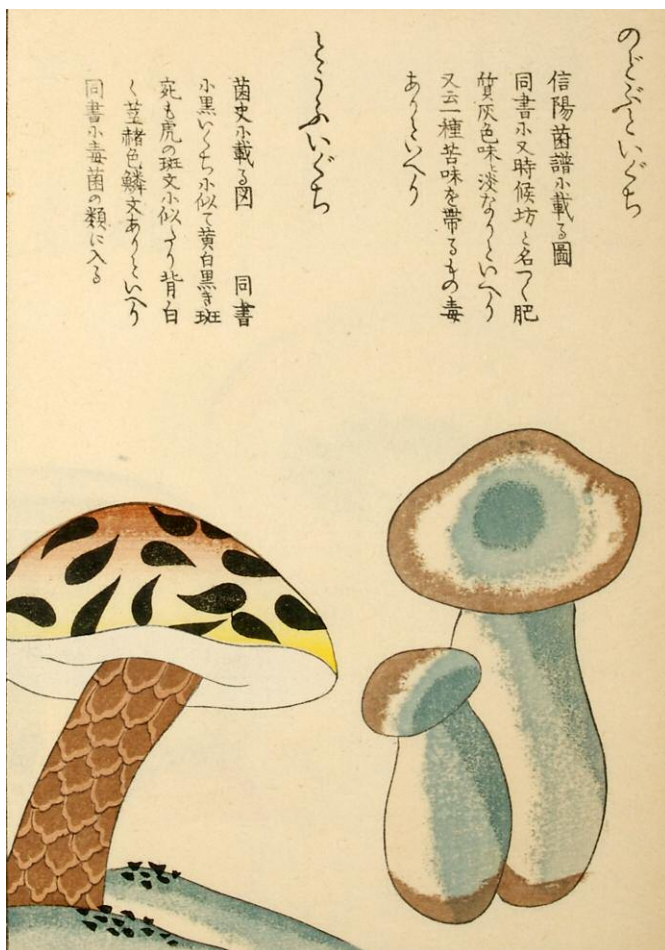 のどぶといぐち
信陽菌譜小載る圖
同書小又時候坊と名つく肥
質灰色味ハ淡なりといへり
又云一種苦味を帶るもの毒
ありといへり
とうふいぐち
菌史小載る図　同書
小黒いくち小似て黄白黒き斑
宛も虎の斑文小似たり背白
く莖赭色鱗文ありといへり
同書小毒菌の類に入る